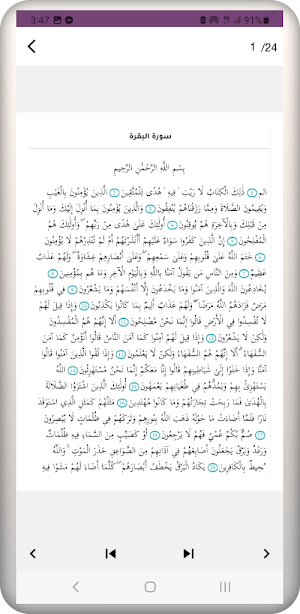 3:47 91%
1 /24
سورة البقرة
بِسْمِ اللَّهِ الرَّحْمَٰنِ الرَّحِيمِ
الم ١ ذَٰلِكَ الْكِتَابُ لَا رَيْبَ ۛ فِيهِ ۛ هُدًى لِلْمُتَّقِينَ ٢ الَّذِينَ يُؤْمِنُونَ بِالْغَيْبِ
وَيُقِيمُونَ الصَّلَاةَ وَمِمَّا رَزَقْنَاهُمْ يُنْفِقُونَ ٣ وَالَّذِينَ يُؤْمِنُونَ بِمَا أُنْزِلَ إِلَيْكَ وَمَا أُنْزِلَ
مِنْ قَبْلِكَ وَبِالْآخِرَةِ هُمْ يُوقِنُونَ ٤ أُولَٰئِكَ عَلَىٰ هُدًى مِنْ رَبِّهِمْ ۖ وَأُولَٰئِكَ هُمُ
الْمُفْلِحُونَ ٥ إِنَّ الَّذِينَ كَفَرُوا سَوَاءٌ عَلَيْهِمْ أَأَنْذَرْتَهُمْ أَمْ لَمْ تُنْذِرْهُمْ لَا يُؤْمِنُونَ
٦ خَتَمَ اللَّهُ عَلَىٰ قُلُوبِهِمْ وَعَلَىٰ سَمْعِهِمْ ۖ وَعَلَىٰ أَبْصَارِهِمْ غِشَاوَةٌ ۖ وَلَهُمْ عَذَابٌ
عَظِيمٌ ٧ وَمِنَ النَّاسِ مَنْ يَقُولُ آمَنَّا بِاللَّهِ وَبِالْيَوْمِ الْآخِرِ وَمَا هُمْ بِمُؤْمِنِينَ ٨
يُخَادِعُونَ اللَّهَ وَالَّذِينَ آمَنُوا وَمَا يَخْدَعُونَ إِلَّا أَنْفُسَهُمْ وَمَا يَشْعُرُونَ ٩ فِي قُلُوبِهِمْ
مَرَضٌ فَزَادَهُمُ اللَّهُ مَرَضًا ۖ وَلَهُمْ عَذَابٌ أَلِيمٌ بِمَا كَانُوا يَكْذِبُونَ ١٠ وَإِذَا قِيلَ لَهُمْ
لَا تُفْسِدُوا فِي الْأَرْضِ قَالُوا إِنَّمَا نَحْنُ مُصْلِحُونَ ١١ أَلَا إِنَّهُمْ هُمُ الْمُفْسِدُونَ
وَلَٰكِنْ لَا يَشْعُرُونَ ١٢ وَإِذَا قِيلَ لَهُمْ آمِنُوا كَمَا آمَنَ النَّاسُ قَالُوا أَنُؤْمِنُ كَمَا آمَنَ
السُّفَهَاءُ ۗ أَلَا إِنَّهُمْ هُمُ السُّفَهَاءُ وَلَٰكِنْ لَا يَعْلَمُونَ ١٣ وَإِذَا لَقُوا الَّذِينَ آمَنُوا قَالُوا
آمَنَّا وَإِذَا خَلَوْا إِلَىٰ شَيَاطِينِهِمْ قَالُوا إِنَّا مَعَكُمْ إِنَّمَا نَحْنُ مُسْتَهْزِئُونَ ١٤ اللَّهُ
يَسْتَهْزِئُ بِهِمْ وَيَمُدُّهُمْ فِي طُغْيَانِهِمْ يَعْمَهُونَ ١٥ أُولَٰئِكَ الَّذِينَ اشْتَرَوُا الضَّلَالَةَ
بِالْهُدَىٰ فَمَا رَبِحَتْ تِجَارَتُهُمْ وَمَا كَانُوا مُهْتَدِينَ ١٦ مَثَلُهُمْ كَمَثَلِ الَّذِي اسْتَوْقَدَ
نَارًا فَلَمَّا أَضَاءَتْ مَا حَوْلَهُ ذَهَبَ اللَّهُ بِنُورِهِمْ وَتَرَكَهُمْ فِي ظُلُمَاتٍ لَا يُبْصِرُونَ
١٧ صُمٌّ بُكْمٌ عُمْيٌ فَهُمْ لَا يَرْجِعُونَ ١٨ أَوْ كَصَيِّبٍ مِنَ السَّمَاءِ فِيهِ ظُلُمَاتٌ
وَرَعْدٌ وَبَرْقٌ يَجْعَلُونَ أَصَابِعَهُمْ فِي آذَانِهِمْ مِنَ الصَّوَاعِقِ حَذَرَ الْمَوْتِ ۚ وَاللَّهُ
مُحِيطٌ بِالْكَافِرِينَ ١٩ يَكَادُ الْبَرْقُ يَخْطَفُ أَبْصَارَهُمْ ۖ كُلَّمَا أَضَاءَ لَهُمْ مَشَوْا فِيهِ